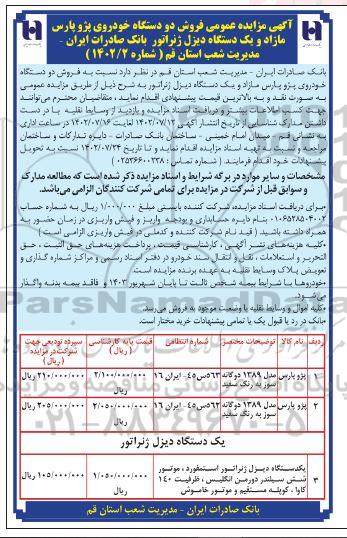 آگهی مزایده عمومی فروش دو دستگاه خودروی پژو پارس
مازاد و یک دستگاه دیزل ژنراتور بانک صادرات ایران -
مدیریت شعب استان قم ( شماره ۱۴۰۲/۲ )
بانک صادرات ایران - مدیریت شعب استان قم در نظر دارد نسبت به فروش دو دستگاه
خودروی پژو پارس مازاد و یک دستگاه دیزل ژنراتور به شرح ذیل از طریق مزایده عمومی
به صورت نقد و به بالاترین قیمت پیشنهادی اقدام نماید ، متقاضیان محترم می‌توانند
جهت کسب اطلاعات بیشتر و دریافت اسناد مزایده و بازدید از وسایط نقلیه با در دست
داشتن مدارک شناسایی از تاریخ انتشار آگهی ۱۴۰۲/۰۷/۱۲ لغایت ۱۴۰۲/۰۷/۱۶ در ساعات اداری
به نشانی قم - میدان امام خمینی - ساختمان بانک صادرات - دایره تدارکات و ساختمان
مراجعه و نسبت به تهیه اسناد مزایده اقدام نماید و تا تاریخ ۱۴۰۲/۰۷/۲۴ نسبت به تحویل
پیشنهادات خود اقدام فرمایند . ( شماره تماس : ۰۲۵۳۶۶۰۰۲۳۸ )
مشخصات و سایر موارد در برگه شرایط و اسناد مزایده ذکر شده است که مطالعه مدارک
و سوابق قبل از شرکت در مزایده برای تمامی شرکت کنندگان الزامی می‌باشد.
-برای دریافت اسناد مزایده، شرکت کننده بایستی مبلغ ۱/۰۰۰/۰۰۰ ریال به شماره حساب
۰۱۰۶۵۳۸۵۰۴۰۰۲ بنام دایره حسابداری و بودجه واریز و فیش واریزی در زمان حضور به
همراه داشته باشید ( قید نام شرکت کننده و کدملی در فیش واریزی الزامی است )
-کلیه هزینه‌های نشر آگهی ، کارشناسی قیمت ، پرداخت هزینه‌های حق الثبت ، حق
التحریر و استعلامات ، نقل و انتقال سند خودرو در دفتر اسناد رسمی و مراکز شماره گذاری و
تعویض پلاک وسایط نقلیه به عهده برنده مزایده است.
-خودروها با شرایط بیمه شخص ثالث تا پایان شهریور ۱۴۰۳ و فاقد بیمه بدنه واگذار
می‌شود.
-کلیه اموال و وسایط نقلیه با وضعیت موجود به فروش می‌رسد.
-بانک در رد یا قبول یک یا تمامی پیشنهادات خرید مختار است.
ردیف نام کالا توضیحات مختصر شماره انتظامی قیمت پایه کارشناسی ( ریال ) سپرده تودیعی جهت شرکت در مزایده ( ریال )
۱ پژو پارس مدل ۱۳۸۹ دوگانه سوز به رنگ سفید ۵۶۳س۴۵- ایران ۱۶ ۲/۱۰۰/۰۰۰/۰۰۰ ۲۱۰/۰۰۰/۰۰۰ ریال
۲ پژو پارس مدل ۱۳۸۹ دوگانه سوز به رنگ سفید ۵۶۲س۴۵- ایران ۱۶ ۲/۰۵۰/۰۰۰/۰۰۰ ۲۰۵/۰۰۰/۰۰۰ ریال
یک دستگاه دیزل ژنراتور
۳ یکدستگاه دیزل ژنراتور استمفورد ، موتور
شش سیلندر دورمن انگلیس ، ظرفیت ۱۴۰
کاوا ، کوپله مستقیم و موتور خاموش
۱/۰۵۰/۰۰۰/۰۰۰ ۱۰۵/۰۰۰/۰۰۰ ریال
بانک صادرات ایران - مدیریت شعب استان قم